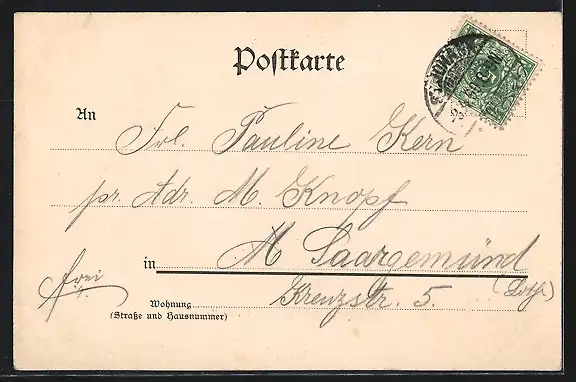 Postkarte
An Frl. Pauline Kern
pr. Adr. M. Knopf
in M Saargemünd
frei
Wohnung Kreuzstr. 5. (Lothr.)
(Straße und Hausnummer)